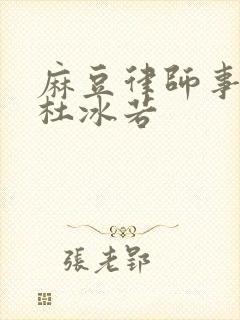 麻豆律師事
杜冰若
張老郢